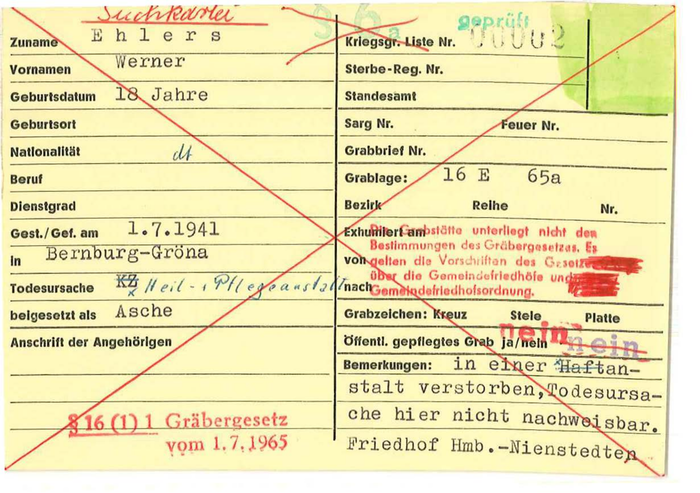 Suchkartei
geprüft
Zuname Ehlers
Vornamen Werner
Geburtsdatum 18 Jahre
Geburtsort
Nationalität dt
Beruf
Dienstgrad
Gest./Gef. am 1.7.1941
in Bernburg-Gröna
Todesursache KZ Heil- i Pflegeanstalt
beigesetzt als Asche
Anschrift der Angehörigen
§ 16 (1) 1 Gräbergesetz
vom 1.7.1965
Kriegsgr. Liste Nr. 00002
Sterbe-Reg. Nr.
Standesamt
Sarg Nr. Feuer Nr.
Grabbrief Nr.
Grablage: 16 E 65a
Bezirk Reihe Nr.
Exhumiert am
von
nach
Die Grabstätte unterliegt nicht den
Bestimmungen des Gräbergesetzes. Es
gelten die Vorschriften des Gesetzes
über die Gemeindefriedhöfe und
Gemeindefriedhofsordnung.
Grabzeichen: Kreuz Stele Platte
Öffentl. gepflegtes Grab ja/nein nein nein
Bemerkungen: in einer Haftan-
stalt verstorben,Todesursa-
che hier nicht nachweisbar.
Friedhof Hmb.-Nienstedten